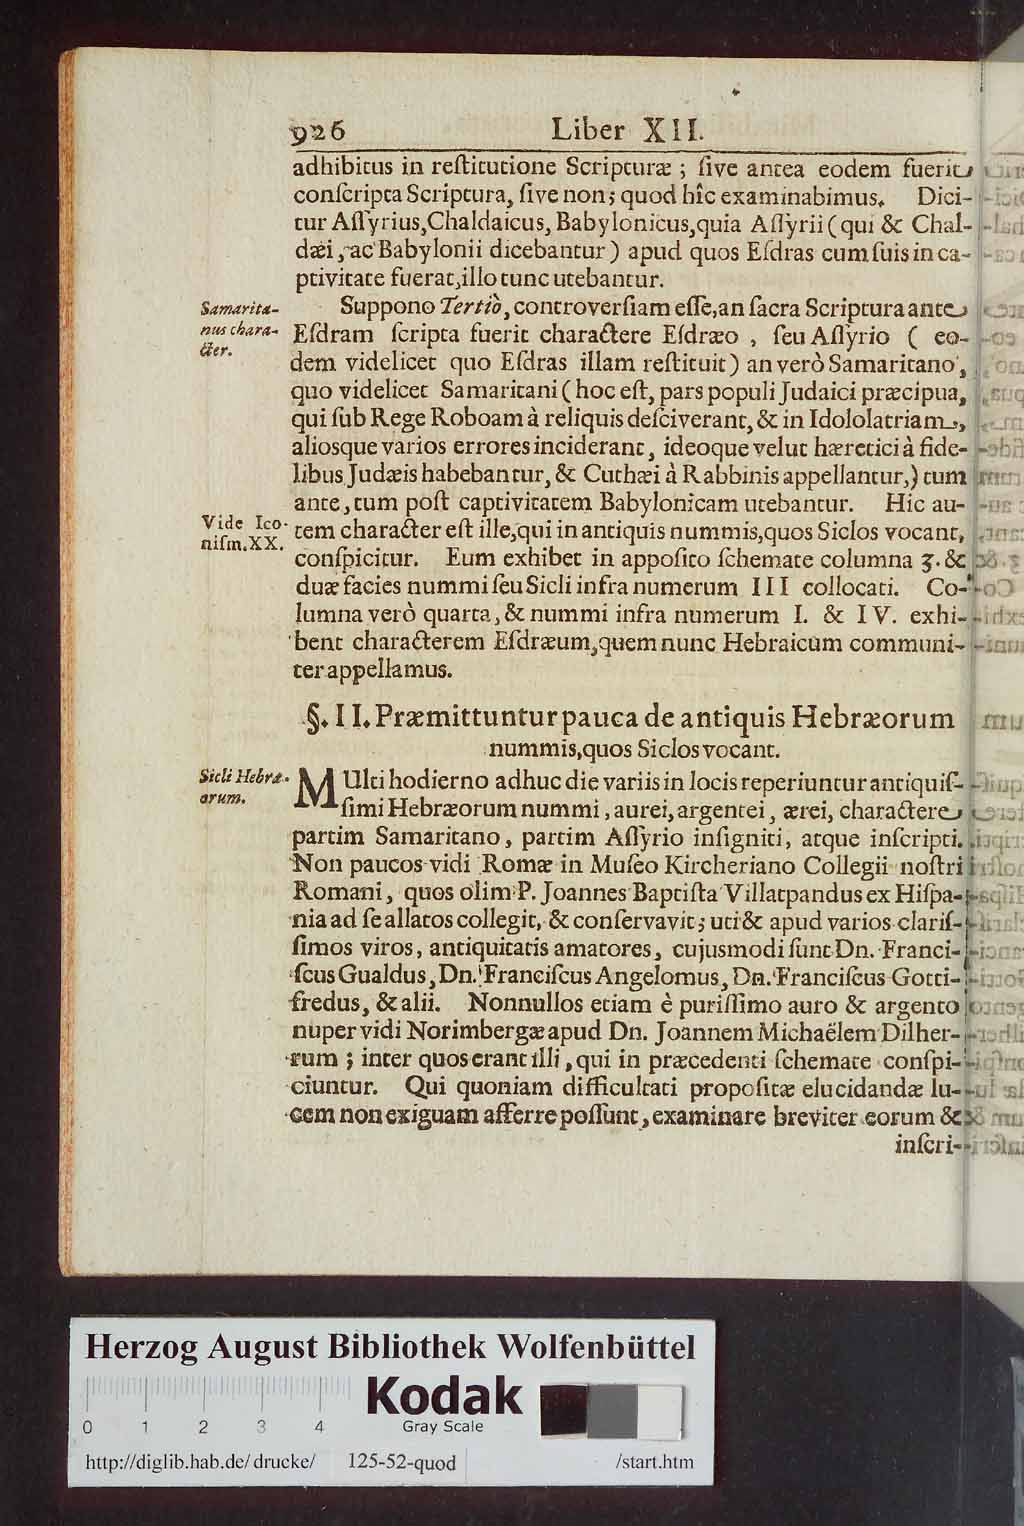 926 Liber XII.
adhibitus in reſtitutione Scripturæ ; ſive antea eodem fuerit
conſcripta Scriptura, ſive non; quod hîc examinabimus. Dici-
tur Aſſyrius, Chaldaicus, Babylonicus, quia Aſſyrii ( qui & Chal-
dæi, ac Babylonii dicebantur ) apud quos Eſdras cum ſuis in ca-
ptivitate fuerat, illo tunc utebantur.
Samarita-
nus chara-
cter.
Suppono Tertiò, controverſiam eſſe, an ſacra Scriptura ante
Eſdram ſcripta fuerit charactere Eſdræo , ſeu Aſſyrio ( eo-
dem videlicet quo Eſdras illam reſtituit ) an verò Samaritano ,
quo videlicet Samaritani ( hoc eſt, pars populi Judaici præcipua,
qui ſub Rege Roboam à reliquis deſciverant, & in Idololatriam,
aliosque varios errores inciderant, ideoque velut hæretici à fide-
libus Judæis habebantur, & Cuthæi à Rabbinis appellantur,) tum
ante, tum poſt captivitatem Babylonicam utebantur. Hic au-
Vide Ico-
niſm. XX.
tem character eſt ille, qui in antiquis nummis, quos Siclos vocant,
conſpicitur. Eum exhibet in appoſito ſchemate columna 3. &
duæ facies nummi ſeu Sicli infra numerum III collocati. Co-
lumna verò quarta, & nummi infra numerum I. & IV. exhi-
bent characterem Eſdræum, quem nunc Hebraicum communi-
ter appellamus.
§. II. Præmittuntur pauca de antiquis Hebræorum
nummis, quos Siclos vocant.
Sicli Hebræ-
orum.
MUlti hodierno adhuc die variis in locis reperiuntur antiquiſ-
ſimi Hebræorum nummi , aurei, argentei , ærei, charactere
partim Samaritano, partim Aſſyrio inſigniti, atque inſcripti.
Non paucos vidi Romæ in Muſeo Kircheriano Collegii noſtri
Romani, quos olim P. Joannes Baptiſta Villatpandus ex Hiſpa-
nia ad ſe allatos collegit, & conſervavit; uti & apud varios clariſ-
ſimos viros, antiquitatis amatores, cujusmodi ſunt Dn. Franci-
ſcus Gualdus, Dn. Franciſcus Angelomus, Dn. Franciſcus Gotti-
fredus, & alii. Nonnullos etiam è puriſſimo auro & argento
nuper vidi Norimbergæ apud Dn. Joannem Michaëlem Dilher-
rum ; inter quos erant illi, qui in præcedenti ſchemate conſpi-
ciuntur. Qui quoniam difficultati propoſitæ elucidandæ lu-
cem non exiguam afferre poſſunt, examinare breviter eorum &
inſcri-
Herzog August Bibliothek Wolfenbüttel
Kodak
Gray Scale
0 1 2 3 4
http://diglib.hab.de/drucke/ 125-52-quod /start.htm